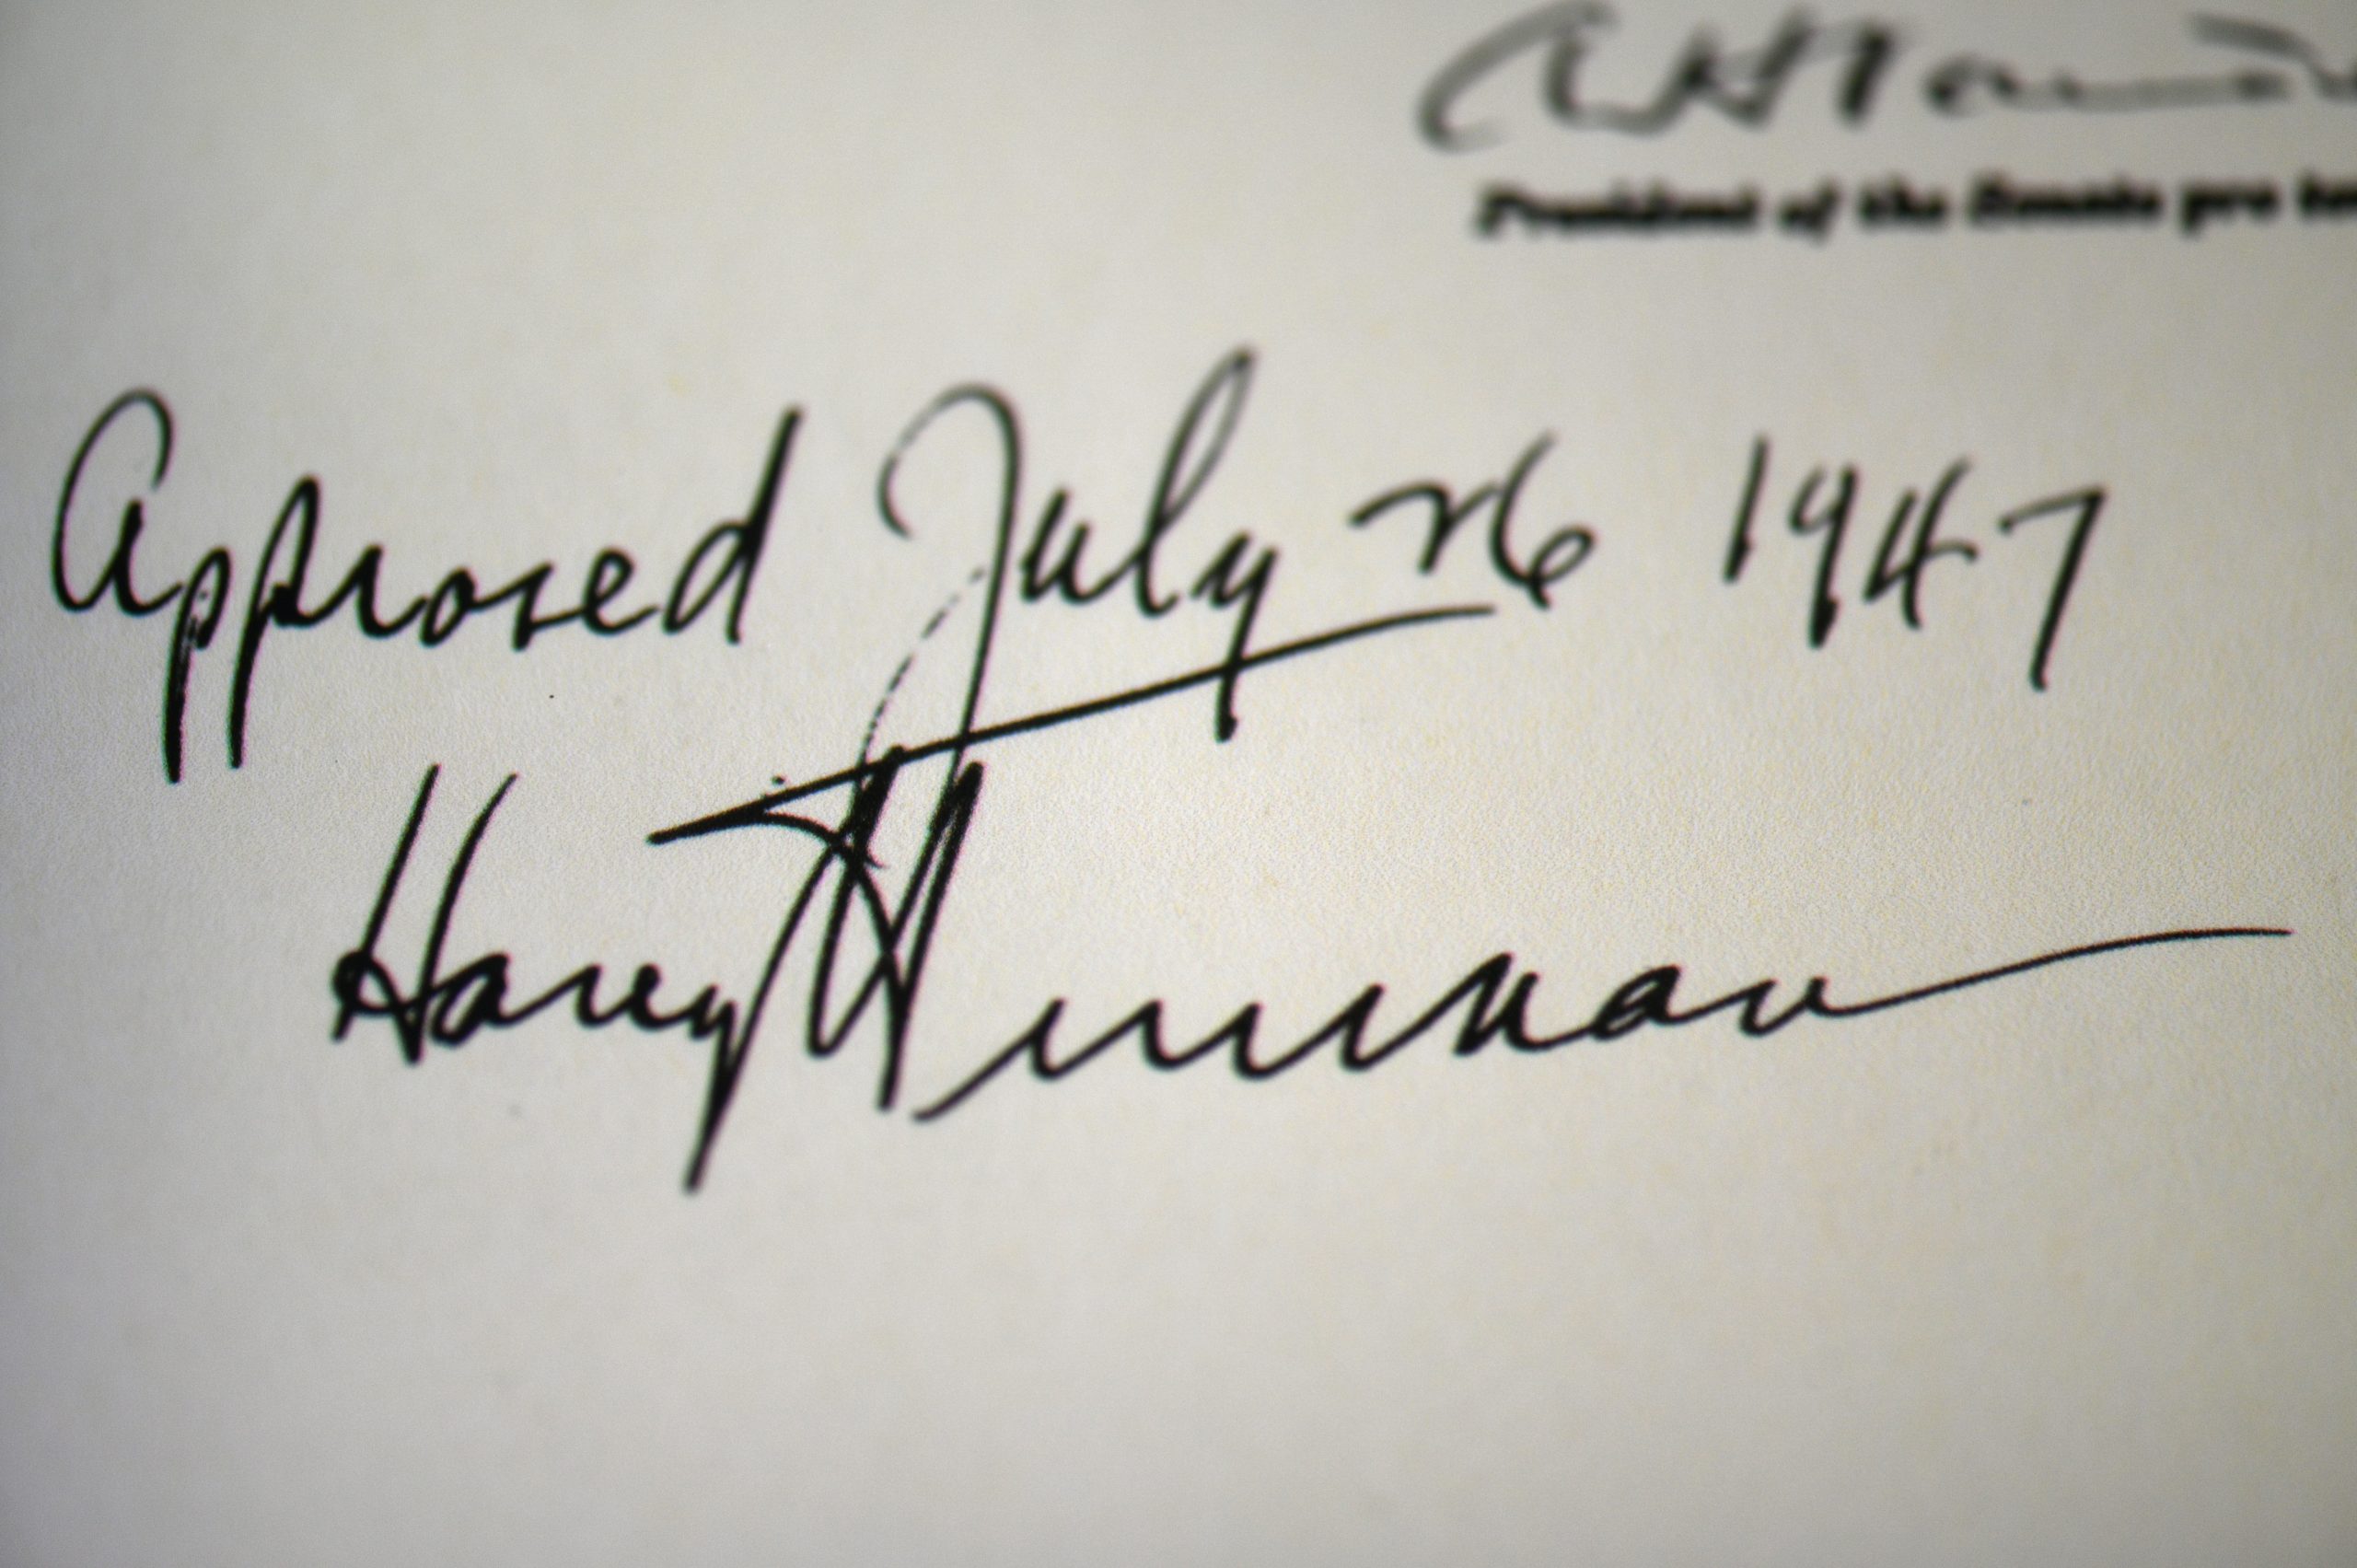 President of the Senate pro
Approved July 26 1947
Harry S Truman